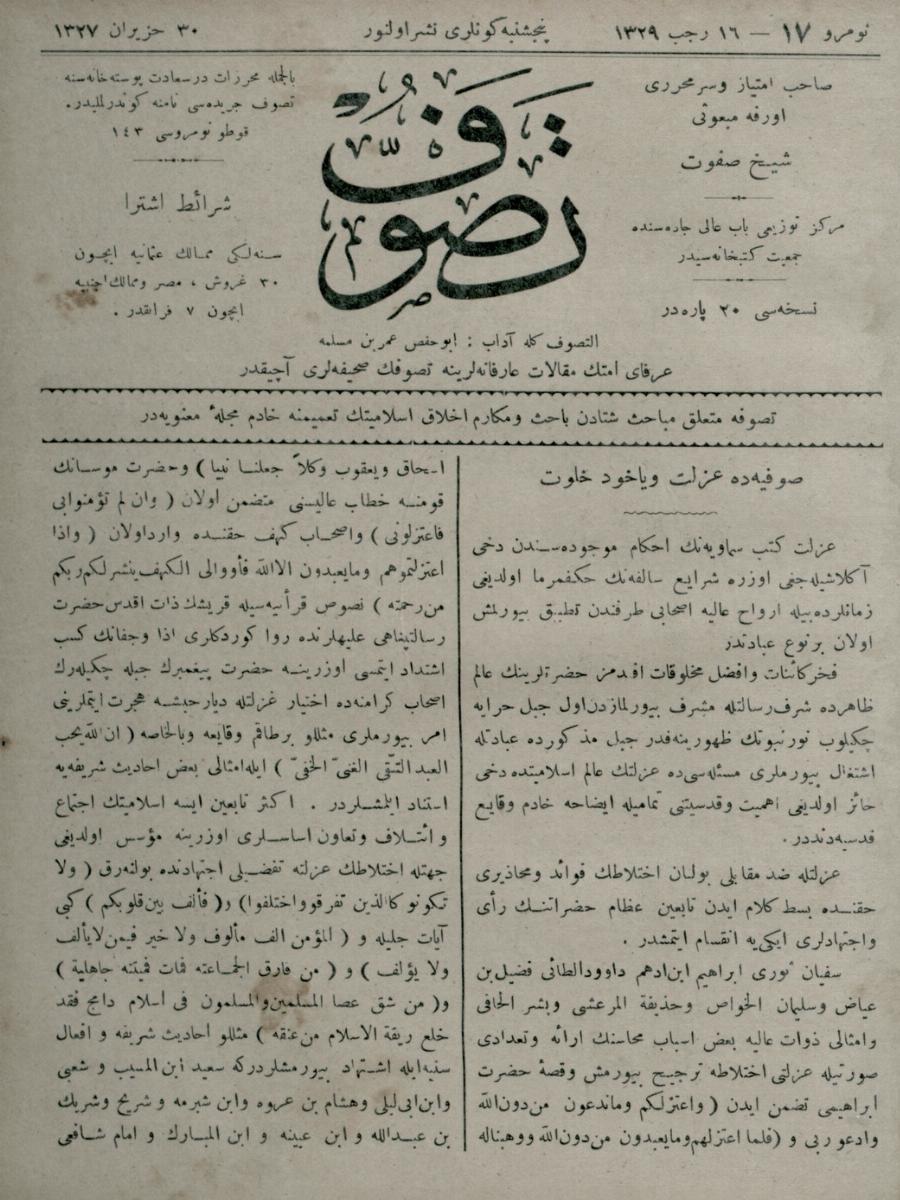 نومرو ١٧ — ١٦ رجب ١٣٢٩
پنجشنبه كونلرى نشر اولنور
٣٠ حزيران ١٣٢٧
صاحب امتياز وسر محررى
اورفه مبعوثى
شيخ صفوت
مركز توزيعى باب عالى جاده‌سنده
جمعيت كتبخانه‌سيدر
نسخه‌سى ٢٠ پاره‌در
تصوف
بالجمله محررات درسعادت پوسته‌خانه‌سنه
تصوف جريده‌سى نامنه كوندرلمليدر.
قوطو نومروسى ١٤٣
شرائط اشترا
سنه‌لكى ممالك عثمانيه ايچون
٣٠ غروش ، مصر وممالك اجنبيه
ايچون ٧ فرانقدر .
التصوف كله آداب : ابوحفص عمر بن مسلمه
عرفاى امتك مقالات عارفانه‌لرينه تصوفك صحيفه‌لرى آچيقدر
تصوفه متعلق مباحث شتادن باحث ومكارم اخلاق اسلاميتك تعميمنه خادم مجلهٔ معنويه‌در
صوفيه‌ده عزلت وياخود خلوت
عزلت كتب سماويه‌نك احكام موجوده‌سندن دخى
آكلاشيله‌جغى اوزره شرايع سالفه‌نك حكمفرما اولديغى
زمانلرده‌بيله ارواح عاليه اصحابى طرفندن تطبيق بيورلمش
اولان برنوع عبادتدر
فخر كائنات وافضل مخلوقات افندمز حضرتلرينك عالم
ظاهرده شرف رسالتله مشرف بيورلمازدن اول جبل حرايه
چكيلوب نور نبوتك ظهورينه‌قدر جبل مذكورده عبادتله
اشتغال بيورملرى مسئله‌سى‌ده عزلتك عالم اسلاميتده دخى
حائز اولديغى اهميت وقدسيتنى تماميله ايضاحه خادم وقايع
قدسيه‌دندر .
عزلتله ضد مقابلى بولنان اختلاطك فوائد ومحاذيرى
حقنده بسط كلام ايدن تابعين عظام حضراتنك رأى
واجتهادلرى ايكى‌يه انقسام ايتمشدر .
سفيان ثورى ابراهيم ابن ادهم داوودالطائى فضيل بن
عياض وسليمان الخواص وحذيفة المرعشى وبشر الحافى
وامثالى ذوات عاليه بعض اسباب محاسنك ارائه وتعدادى
صورتيله عزلتى اختلاطه ترجيح بيورمش وقصهٔ حضرت
ابراهيمى تضمن ايدن ( واعتزلكم وماتدعون من دون الله
وادعو ربى و (فلما اعتزلهم ومايعبدون من دون الله ووهبناله
اسحاق ويعقوب وكلاً جعلنا نبيا ) وحضرت موسانك
قومنه خطاب عاليسنى متضمن اولان ( وان لم تؤمنوابى
فاعتزلونى ) واصحاب كهف حقنده وارداولان ( واذا
اعتزلتموهم ومايعبدون الاالله فأووالى الكهف ينشرلكم ربكم
من رحمته ) نصوص قرآنيه‌سيله قريشك ذات اقدس حضرت
رسالتپناهى عليهلرنده روا كوردكلرى اذا وجفانك كسب
اشتداد ايتمسى اوزرينه حضرت پيغمبرك جبله چكيله‌رك
اصحاب كرامنه‌ده اختيار عزلتله ديار حبشه هجرت ايتملرينى
امر بيورملرى مثللو برطاقم وقايعه وبالخاصه ( ان الله يحب
العبد التقى الغنىّ الخفىّ ) ايله امثالى بعض احاديث شريفه‌يه
استناد ايلمشلردر . اكثر تابعين ايسه اسلاميتك اجتماع
و ائتلاف وتعاون اساسلرى اوزرينه مؤسس اولديغى
جهتله اختلاطك عزلته تفضيلى اجتهادنده بولنه‌رق ( ولا
تكونو كاالذين تفرقوواختلفوا) و( فألف بين قلوبكم ) كبى
آيات جليله و ( المؤمن الف مألوف ولا خير فيمن لايألف
ولا يؤلف ) و ( من فارق الجماعته فمات فميتته جاهلية )
و( من شق عصا المسلمين والمسلمون فى اسلام دامج فقد
خلع ربقة الاسلام من عنقه ) مثللو احاديث شريفه و افعال
سنيه‌ايله اشتهاد بيورمشلردركه سعيد ابن المسيب و شعبى
وابن ابى ليلى وهشام بن عروه وابن شبرمه و شريح وشريك
بن عبدالله و ابن عيينه و ابن المبارك و امام شافعى